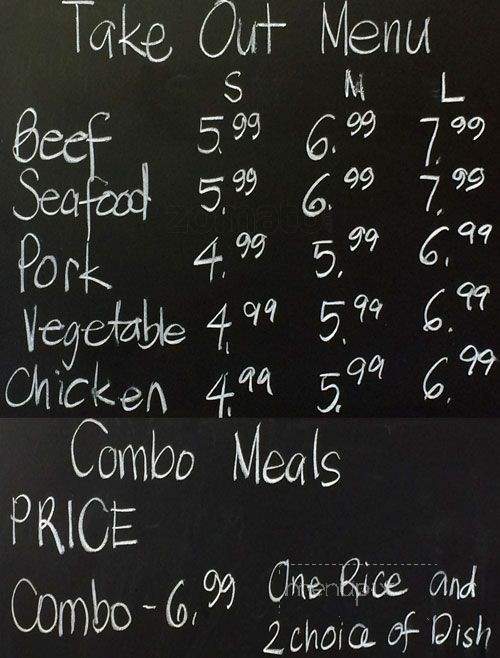 Take Out Menu
S M L
Beef 5.99 6.99 7.99
Seafood 5.99 6.99 7.99
zomato
Pork 4.99 5.99 6.99
Vegetable 4.99 5.99 6.99
Chicken 4.99 5.99 6.99
Combo Meals
PRICE
Combo - 6.99 One Rice and
2 choice of Dish